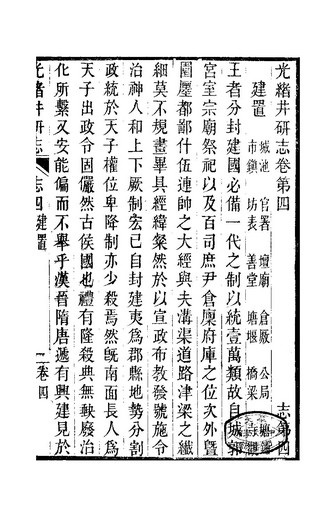 光緒井研志卷第四
志第四
建置
城池 官署 壇廟 倉廒 公局
市鎮 坊表 善堂 塘堰 橋梁
王者分封建國必備一代之制以統壹萬類故自城郭
宮室宗廟祭祀以及百司庶尹倉廩府庫之位次外暨
園廛都鄙什伍連帥之大經與夫溝渠道路津梁之纖
細莫不規畫畢具經緯粲然於以宣政布教發號施令
治神人和上下厥制宏已自封建夷為郡縣地勢分割
政統於天子權位卑降制亦少殺焉然旣南面長人為
天子出政令固儼然古侯國也禮有隆殺典無軼廢治
化所繫又安能偏而不舉乎漢晉隋唐遞有興建見於
光緒井研志 志四 建置
一 卷四